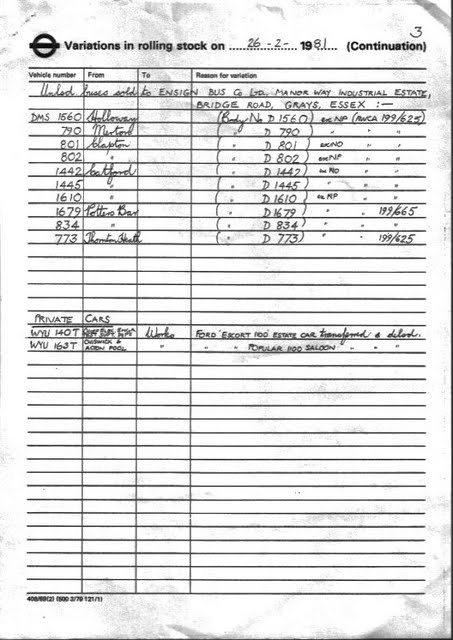 3
Variations in rolling stock on 26-2- 1981 (Continuation)
Vehicle number From To Reason for variation
Unlsd buses sold to ENSIGN BUS Co LTD., MANOR WAY INDUSTRIAL ESTATE,
BRIDGE ROAD, GRAYS, ESSEX :—
DMS 1560 Holloway (Body No D 1560) ex NP (RWCA 199/625)
790 Merton ( " D 790 ) " " "
801 Clapton ( " D 801 ) ex NO " "
802 " ( " D 802 ) ex NP " "
1442 Catford ( " D 1442 ) ex NO " "
1445 " ( " D 1445 ) " " "
1610 " ( " D 1610 ) ex NP " "
1679 Potters Bar ( " D 1679 ) " " 199/665
834 " ( " D 834 ) " " "
773 Thornton Heath ( " D 773) " " 199/625
PRIVATE CARS
WYU 140T Works FORD 'ESCORT 1100' ESTATE CAR transferred & delsd.
WYU 163T CHISWICK & ACTON POOL " " " POPULAR 1100 SALOON " " "
408/65(2) (500 2/79 121/1)